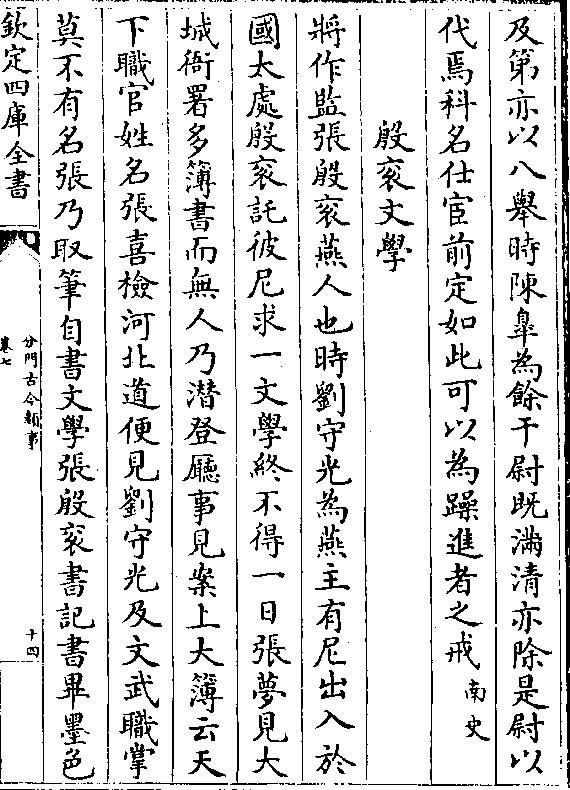 及第亦以八舉時陳臯為餘干尉既滿清亦除是尉以
代焉科名仕宦前定如此可以為躁進者之戒南史
殷衮文學
將作監張殷衮燕人也時劉守光為燕主有尼出入於
國太處殷衮託彼尼求一文學終不得一日張夢見大
城衙署多簿書而無人乃潜登廳事見案上大簿云天
下職官姓名張喜檢河北道便見劉守光及文武職掌
莫不有名張乃取筆自書文學張殷衮書記書畢墨色
欽定四庫全書
分門古今類事
卷七
十四